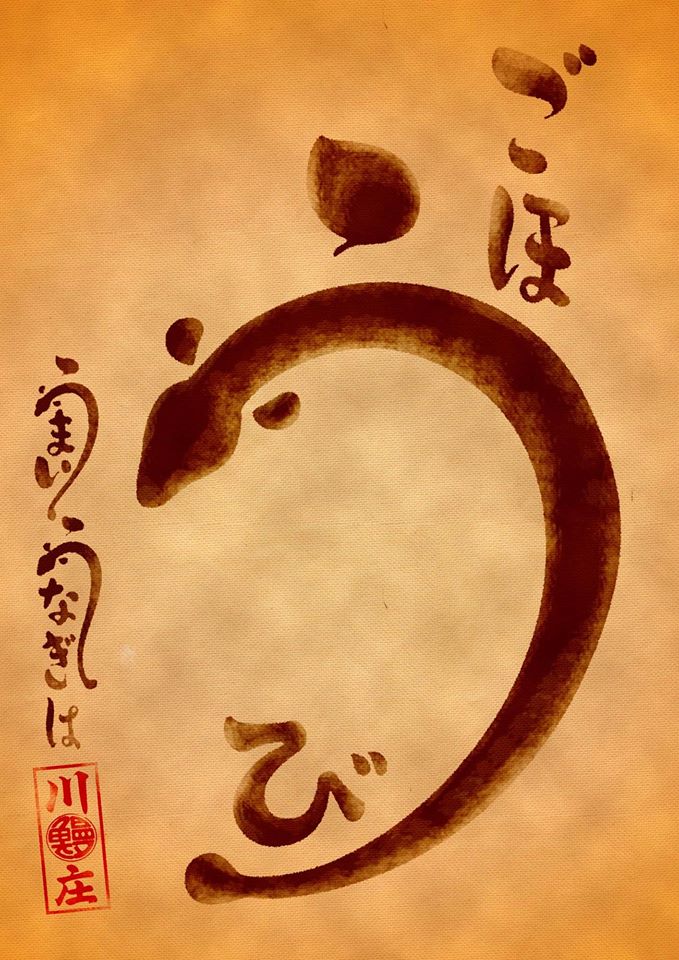 ごほうび
うまい
うなぎは
川鰻庄